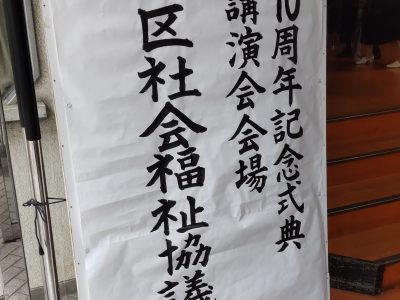 10周年記念式典
講演会会場
区社会福祉協議